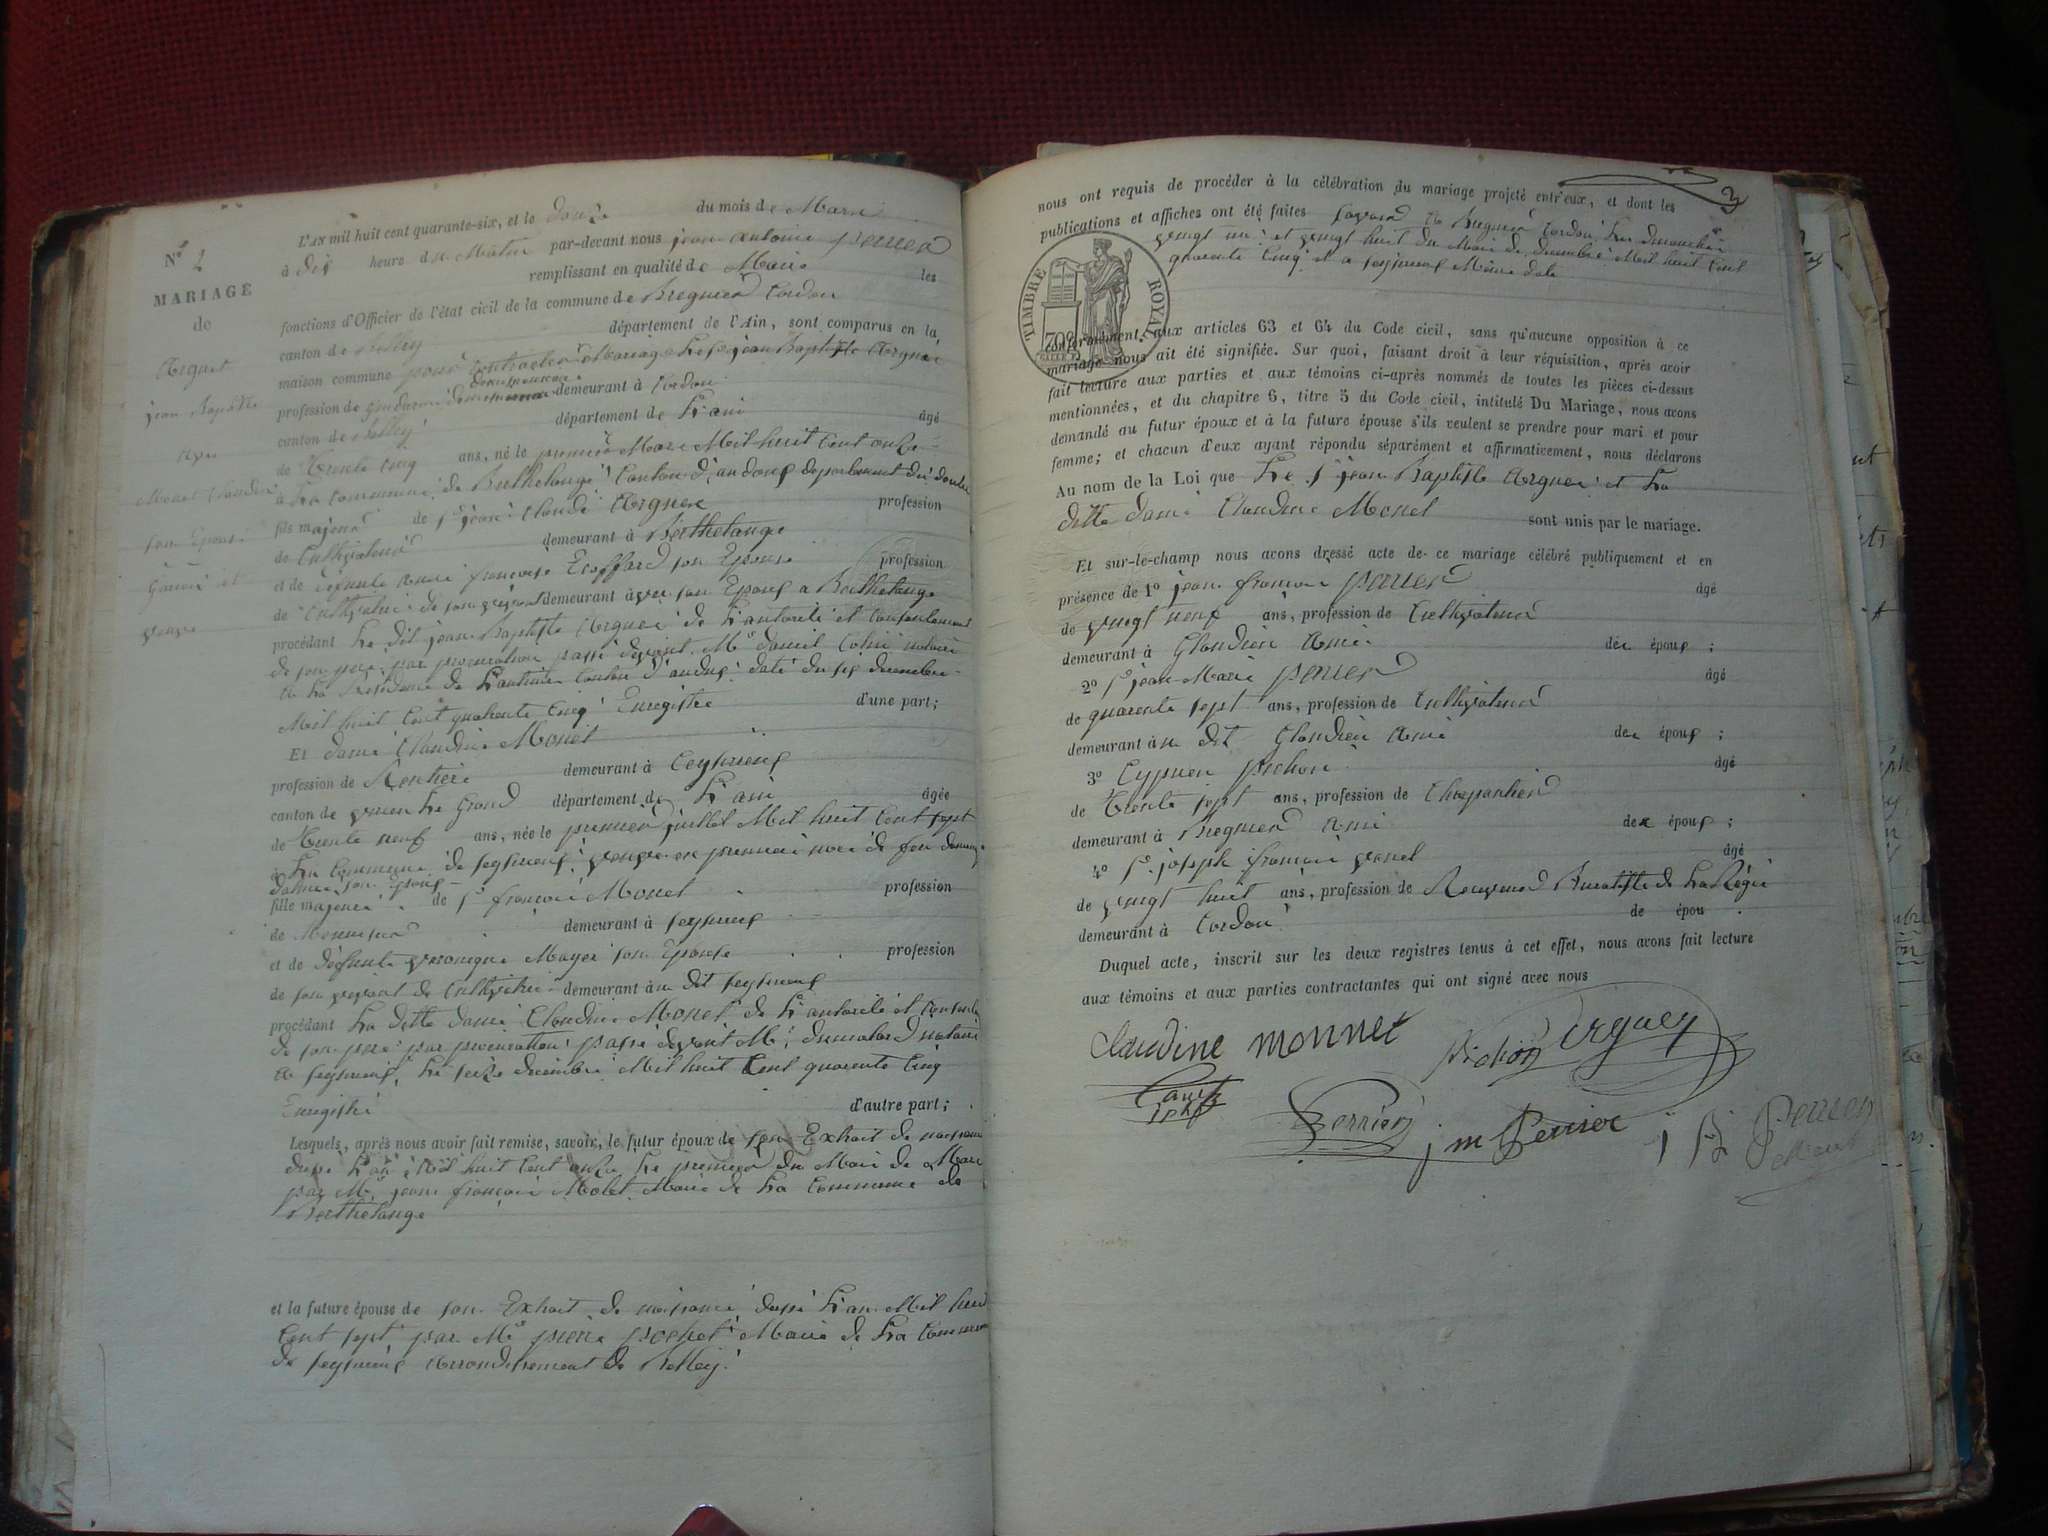 N° 2
MARIAGE
de
Arguet
jean Baptiste
avec
Monet Claudine
son Epouse
L'AN mil huit cent quarante-six, et le douze du mois de Mars
à dix heure du Matin par-devant nous jean antoine perrier
remplissant en qualité de Maire les
fonctions d'Officier de l'état civil de la commune de Bregnier Cordon
canton de Belley département de l'Ain, sont comparus en la
maison commune pour contracter Mariage Le Sr jean Baptiste Arguei
profession de gendarme demeurant à Cordon
canton de Belley département de L'ain âgé
de Trente Cinq ans, né le premier Mars Mil huit Cent onze
à La Commune de Berthelange Canton d'audeux departement du doubs
fils majeur de Sr jean Claude Arguei profession
de Cultivateur demeurant à Berthelange
et de défunte françoise Ecoffard son Epouse profession
de Cultivatrice de son vivant demeurant avec son Epoux a Berthelange
procédant Le dit jean Baptiste Arguei de L'autorité et Consentement
de son pere par procuration passé devant Me notaire
a La Residence de Canton d'audeux daté du six decembre
Mil huit Cent quarente Cinq Enregistré d'une part;
Et dame Claudine Monet
profession de Rentiere demeurant à Ceyzerieux
canton de virieu Le Grand département de L'ain âgée
de Trente neuf ans, née le premier juillet Mil huit Cent sept
à La Commune de seyzerieux veuve en premiere noce de feu
son Epoux
fille majeure de Sr françois Monet profession
de demeurant à seyzerieux
et de défunte veronique Moyei son Epouse profession
de son vivant de Cultivatrice demeurant au dit seyzerieux
procédant La ditte dame Claudine Monet de L'autorité et Consente
de son pere par procuration passé devant Me notaire
a seyzerieux, Le seize decembre Mil huit Cent quarente Cinq
Enregistré d'autre part;
Lesquels, après nous avoir fait remise, savoir, le futur époux de son Extrait de naissance
dressé L'an Mil huit Cent onze Le premier du Mois de Mars
par Mr jean françois Molet Maire de La Commune de
Berthelange
et la future épouse de son Extrait de naissance dressé L'an Mil huit
Cent sept par Mr pierre pochet Maire de La Commune
de seyzerieux arrondissement de Belley.
2
nous ont requis de procéder à la célébration du mariage projeté entr'eux, et dont les
publications et affiches ont été faites savoir a Bregnier Cordon Les dimanches
vingt un et vingt huit du Mois de decembre Mil huit Cent
quarente Cinq et a seyzerieux Même date
TIMBRE ROYAL
70c
conformément aux articles 63 et 64 du Code civil, sans qu'aucune opposition à ce
mariage nous ait été signifiée. Sur quoi, faisant droit à leur réquisition, après avoir
fait lecture aux parties et aux témoins ci-après nommés de toutes les pièces ci-dessus
mentionnées, et du chapitre 6, titre 5 du Code civil, intitulé Du Mariage, nous avons
demandé au futur époux et à la future épouse s'ils veulent se prendre pour mari et pour
femme; et chacun d'eux ayant répondu séparément et affirmativement, nous déclarons
Au nom de la Loi que Le S jean Baptiste Arguei et La
ditte dame Claudine Monet sont unis par le mariage.
Et sur-le-champ nous avons dressé acte de ce mariage célébré publiquement et en
présence de 1° jean françois perrier âgé
de vingt neuf ans, profession de Cultivateur
demeurant à Glandieu Ami des époux ;
2° Sr jean Marie perrier âgé
de quarente sept ans, profession de Cultivateur
demeurant au dit Glandieu Ami des époux ;
3° Cyprien pichon âgé
de Trente sept ans, profession de Charpentier
demeurant à Bregnier Ami des époux ;
4° Sr joseph françois âgé
de vingt huit ans, profession de Buraliste de La Régie
demeurant à Cordon de épou
Duquel acte, inscrit sur les deux registres tenus à cet effet, nous avons fait lecture
aux témoins et aux parties contractantes qui ont signé avec nous
Claudine monnet
Pichon Arguey
Perrier j m Perrier
Perrier
Maire